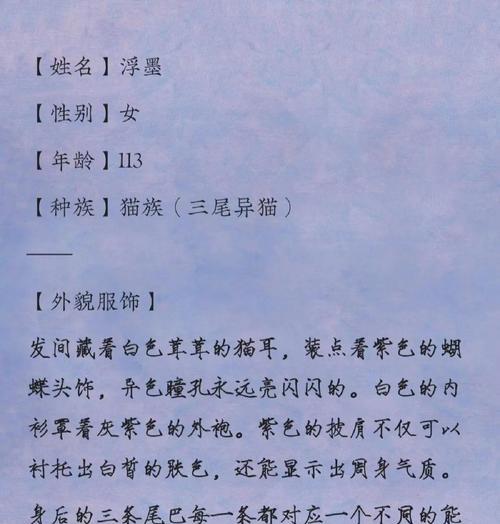 【姓名】浮墨
【性别】女
【年龄】113
【种族】猫族（三尾异猫）
【外貌服饰】
发间藏着白色茸茸的猫耳，装点着紫色的蝴
蝶头饰，异色瞳孔永远亮闪闪的。白色的内
衫罩着灰紫色的外袍。紫色的披肩不仅可以
衬托出白皙的肤色，还能显示出周身气质。
身后的三条尾巴每一条都对应一个不同的能